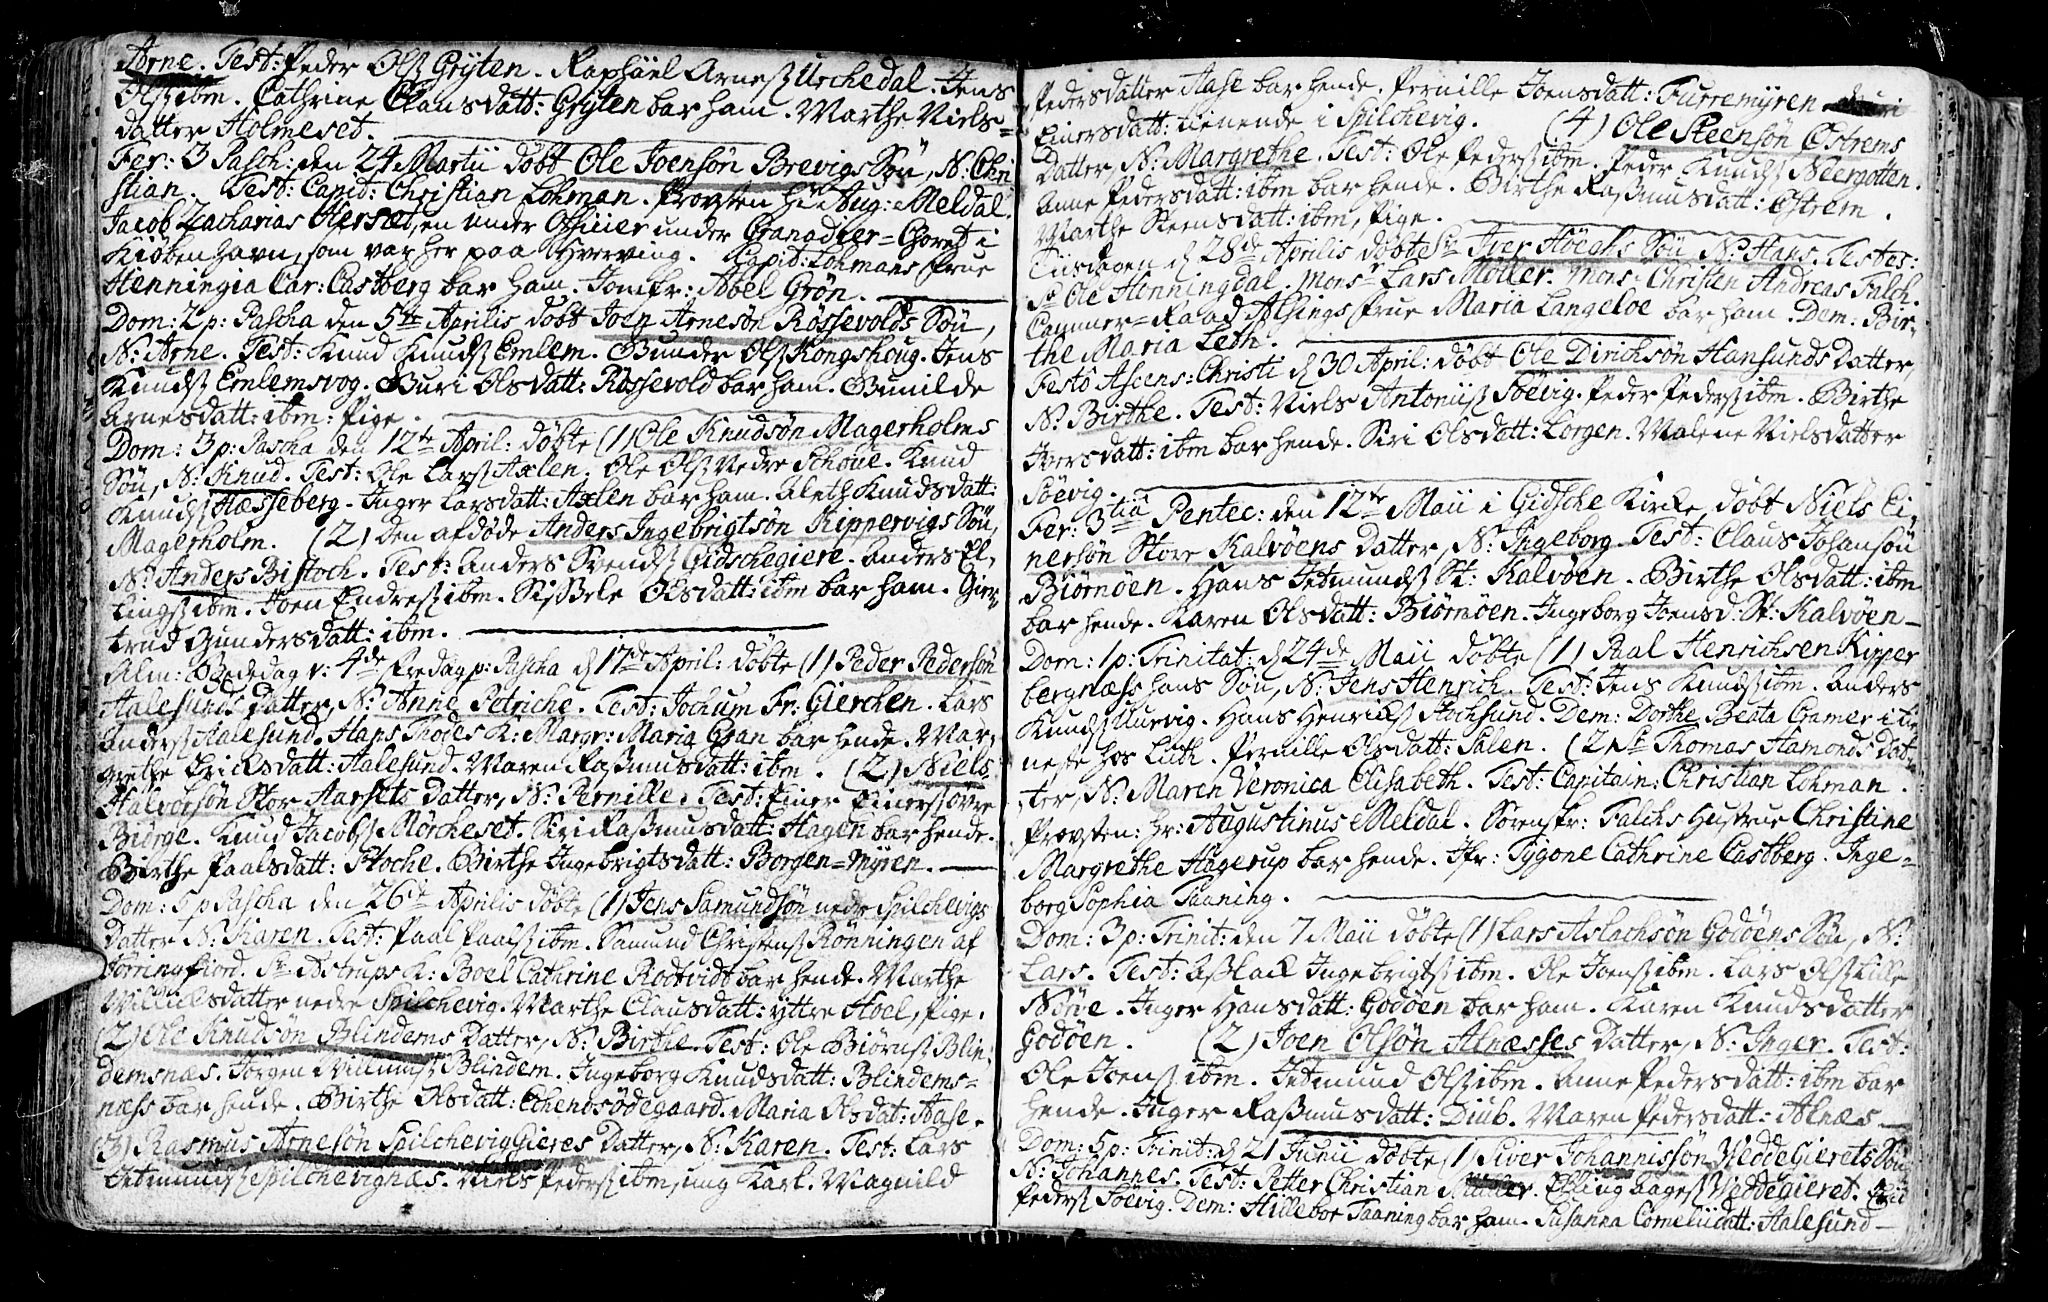 Arne. Test: Peder Olsz Gryten. Raphäel Arnesz Urchedal. Jens
Olsz ibm. Cathrine Clausdatt: Gryten bar ham. Marthe Niels=
datter Holmeset.
Fer: 3 Pasch: den 24 Martii døbt Ole Joensøn Brevigs Søn, N: Chri
stian. Test: Capid: Christian Lohman. Provsten Hr Aug: Meldal.
Jacob Zacharias Herset, en under Officier under Granadier=Choret i
Kiøbenhavn, som var her paa Hverving. Capid: Lohmans Frue
Henningia Car: Castberg bar ham. Jomfr: Abel Grøn.
Dom: 2 p: Pascha den 5te Aprilis døbt Joen Arnesøn Røssevolds Søn,
N: Arne. Test: Knud Knudsz Emlem. Gunder Olsz Kongshoug. Jens
Knudsz Emlemsvog. Guri Olsdatt: Røssevold bar ham. Gunilde
Arnesdatt: ibm: Pige.
Dom: 3 p: Pascha den 12te April: døbte (1) Ole Knudsøn Magerholms
Søn, N: Knud. Test: Ole Larsz Axlen. Ole Olsz Nedre Schoue. Knud
Knudsz Hæsseberg. Inger Larsdatt: Axlen bar ham. Aleth Knudsdatt:
Magerholm. (2) Den afdøde Anders Ingebrigtsøn Kippervigs Søn,
N: Anders Bistoch. Test: Anders Svendsz Gidschegiere. Anders El,
lingsz ibm. Joen Endresz ibm. Sissele Olsdatt: ibm bar ham. Gier,
trud Gundersdatt: ibm.
Alm: Bededag v: 4de Fredag p: Pascha d 17de April: døbte (1) Peder Pedersøn
Aalesunds Datter, N: Anne Petriche. Test: Jochum Fr: Gierchen. Lars
Andersz Aalesund. Hans Thoies K: Margr: Maria Gran bar hende. Mar,
grethe Ericksdatt: Aalesund. Maren Rasmusdatt: ibm. (2) Niels
Halvorsøn Stor Aarsets Datter, N: Pernille. Test: Einer Einersz øvre
Biørge. Knud Jacobsz Mørcheset. Siri Rasmusdatt: Hagen bar hende.
Birthe Paalsdatt: Floche. Birthe Ingebrigtsdatt: Borgen=Myren.
Dom: 5 p Pascha den 26te Aprilis døbte (1) Jens Samundsøn nedr Spilchevigs
Datter N: Karen. Test: Paal Paalsz ibm. Samund Christensz Rønningen af
Sr Astrups K: Boel Cathrine Rodtvidt bar hende. Marthe
Villumsdatter nedre Spilchevig. Marthe Clausdatt: yttre Hoel, Pige.
(2) Ole Knudsøn Blindems Datter, N: Birthe. Test: Ole Biørnsz Blin,
demsnæs. Jørgen Villumsz Blindem. Ingeborg Knudsdatt: Blindems=
næss bar hende. Birthe Olsdatt: Echenesødegaard. Maria Olsdat: Aase.
(3) Rasmus Arnesøn Spilcheviggieres Datter, N: Karen. Test: Lars
Jetmundsz Spilchevignæs. Niels Pedersz ibm, ung Karl. Magnild
Pedersdatter Aase bar hende. Pernille Joensdatt: Furremyren
Einersdatt: tienende i Spilchevig. (4) Ole Steensøn Østrems
Datter, N: Margrethe. Test: Ole Pedersz ibm. Peder Knudsz Neergotten.
Anne Pedersdatt: ibm bar hende. Birthe Rasmusdatt: Østrem.
Marthe Steensdatt: ibm, Pige.
Tiisdagen d 28de Aprilis døbte Sr Iver Høeghs Søn N: Hans. Testes:
Sr Ole Honningdal. Monsr Lars Møller. Mons: Christen Andreas Falch.
Cammer=Raad Alsings Frue Maria Langeloe bar ham. Dem: Bir,
the Maria Leth.
Festo Ascens: Christi d 30 April: døbt Ole Dirichsøn Hansunds Datter,
N: Birthe. Test: Niels Antoniisz Søevig. Peder Pedersz ibm. Birthe
Iversdatt: ibm bar hende. Siri Olsdatt: Lorgen. Malene Nielsdatter
Søevig.
Fer: 3tia Pentec: den 12te Maii i Gidsche Kirke døbt Niels Ei,
nersøn Store Kalvøens Datter, N: Ingeborg. Test: Claus Johansøn
Biørnøen. Hans Jetmundsz St: Kalvøen. Birthe Olsdatt: ibm
bar hende. Karen Olsdatt: Biørnøen. Ingeborg Joensd: St: Kalvøen
Dom: 1 p: Trinitat: d 24de Maii døbte (1) Paal Henrichsen Kipper
bergnæss hans Søn, N: Jens Henrich. Test: Jens Knudsz ibm. Anders
Knudsz Uurvig. Hans Henricksz Stochsund. Dem: Dorthe Beata Cramer i tie
neste hos Luth. Pernille Olsdatt: Salen. (2) Sr Thomas Hamonds Dat,
ter, N: Maren Veronica Elisabeth. Test: Capitain: Christian Lohman.
Provsten: Hr: Augustinus Meldal. Sørenskr: Falchs Hustrue Christine
Margrethe Hagerup bar hende. Jfr: Tygone Cathrine Castberg. Inge=
borg Sophia Taaning.
Dom: 3 p: Trinit: den 7 Maii døbte (1) Lars Aslachsøn Godøens Søn, N:
Lars. Test: Aslack Ingebrigtsz ibm. Ole Joensz ibm. Lars Olsz Lille
Nørve. Inger Hansdatt: Godøen bar ham. Karen Knudsdatter
Godøen. (2) Joen Olsøn Alnæsses Datter, N: Inger. Test:
Ole Joensz ibm. Jetmund Olsz ibm. Anne Pedersdatt: ibm bar
hende. Inger Rasmusdatt: Diub. Maren Pedersdatt: Alnæs
Dom: 5 p: Trinit: d 21 Junii døbte (1) Siver Johannissøn Veddegierets Søn
N: Johannes. Test: Petter Christian Müller. Elling Hagesz Veddegieret.
Pedersz Søevig. Dem: Hilleboe Taaning bar ham. Susanna Corneliidatt: Aalesund